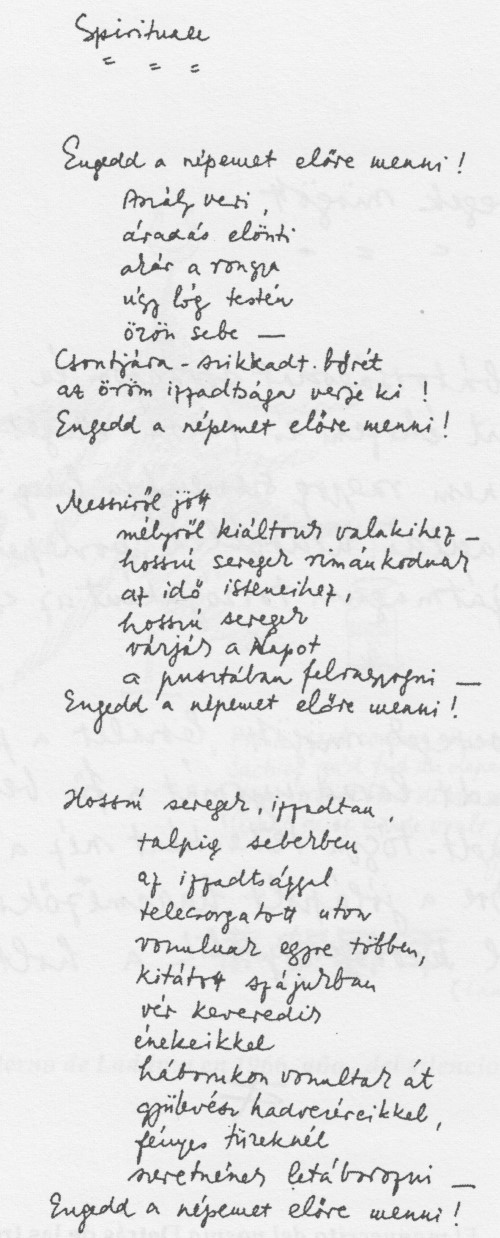 Spirituale
Engedd a népemet előre menni!
Aszály veri,
áradás elönti
akár a rongya
úgy lóg testén
özön sebe —
Csontjára-szikkadt bőrét
az öröm izzadtsága verje ki!
Engedd a népemet előre menni!
Messziről jött
mélyről kiáltunk valakihez —
hosszú seregek rimánkodnak
az idő isteneihez,
hosszú seregek
várják a Napot
a pusztában felragyogni —
Engedd a népemet előre menni!
Hosszú seregek, izzadtan,
talpig sebekben
az izzadtsággal
telecsorgatott úton
vonulnak egyre többen,
kitátott szájukban
vér keveredik
énekeikkel
háborúkon vonultak át
gyülevész hadvezéreikkel,
fényes tüzeknél
szeretnének letáborozni —
Engedd a népemet előre menni!